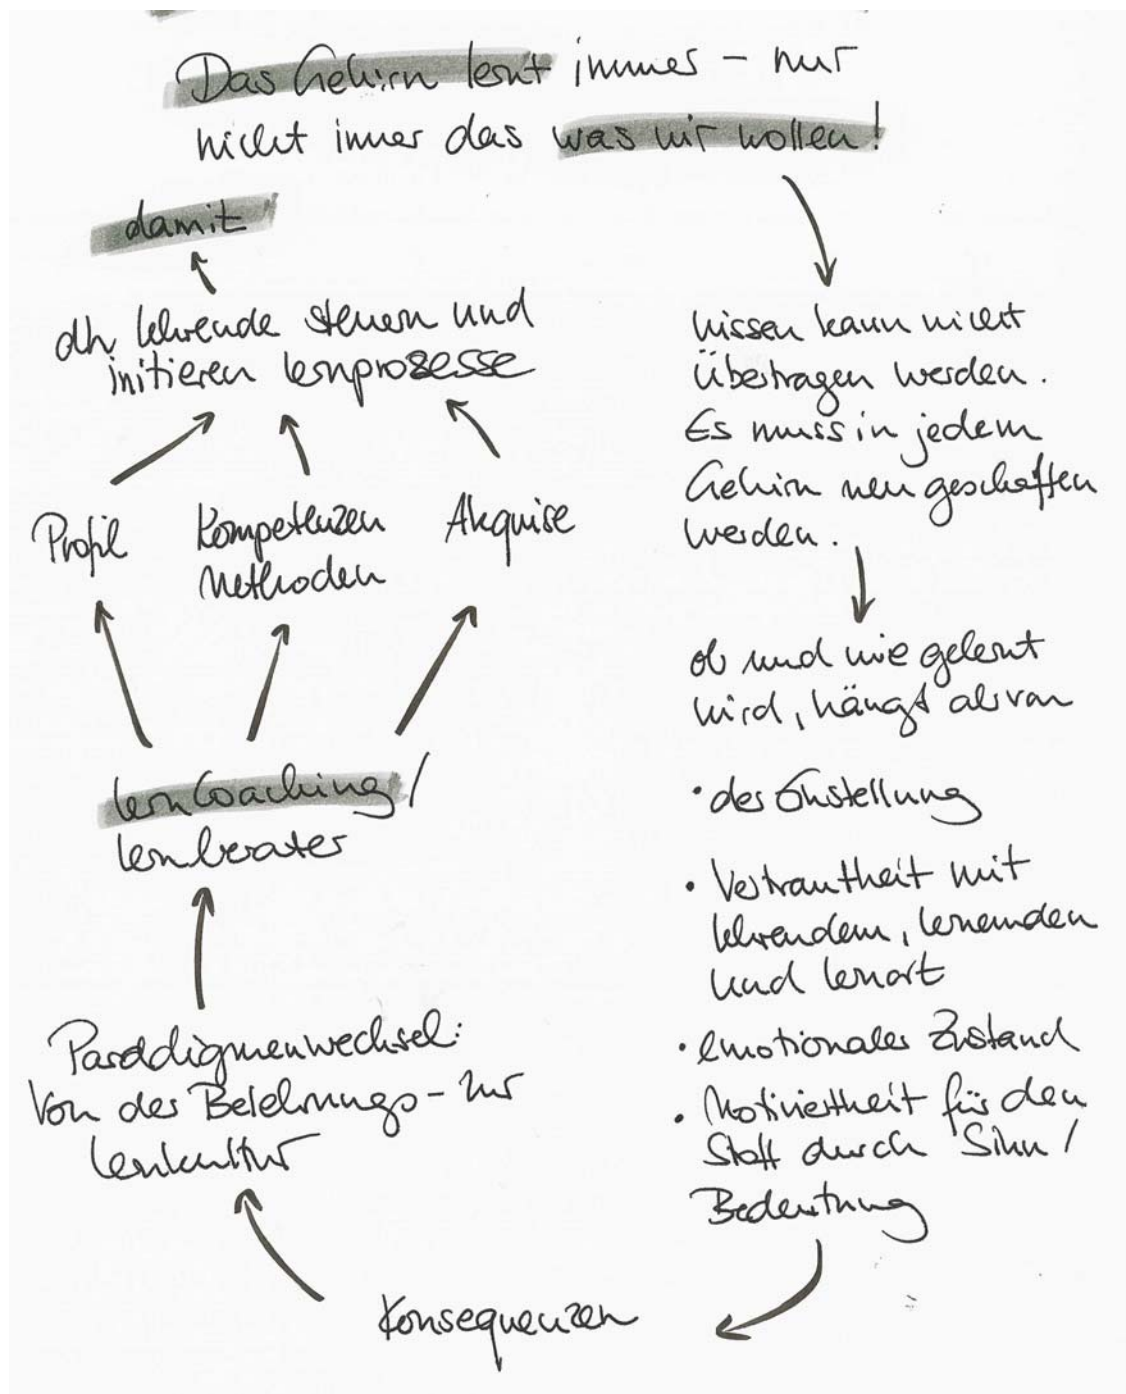 Das Gehirn lernt immer - nur
nicht immer das was wir wollen!
damit
dh lehrende steuern und
initieren lernprozesse
Profil
Kompetenzen
Methoden
Akquise
lerncoaching/
lernberater
Paradigmenwechsel:
Von der Belehrungs- zur
lernkultur
Konsequenzen
wissen kann nicht
Übertragen werden.
Es muss in jedem
Gehirn neu geschaffen
werden.
ob und wie gelernt
wird, hängt ab von
• der Einstellung
• Vertrautheit mit
lehrendem, lernenden
und lernort
• emotionaler Zustand
• Motiviertheit für den
Stoff durch Sinn /
Bedeutung